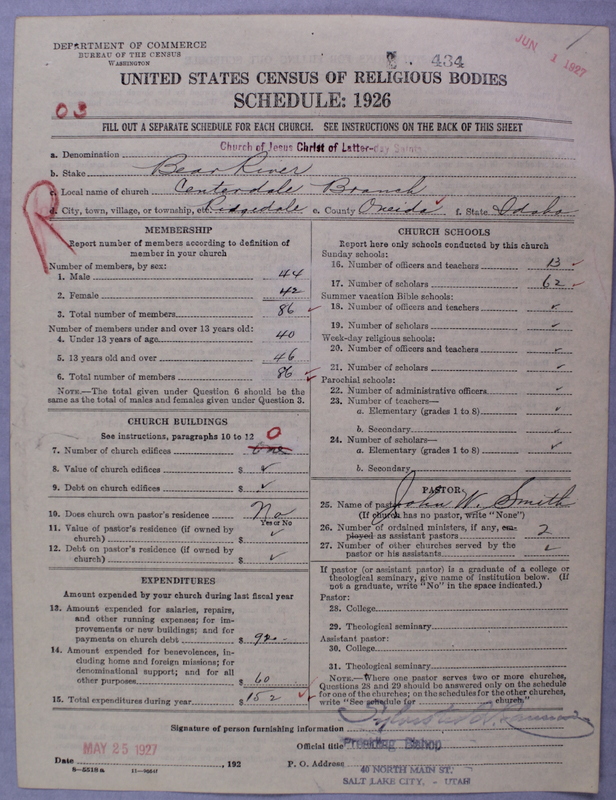 DEPARTMENT OF COMMERCE
BUREAU OF THE CENSUS
WASHINGTON
434
JUN 1 1927
UNITED STATES CENSUS OF RELIGIOUS BODIES
SCHEDULE: 1926
03
FILL OUT A SEPARATE SCHEDULE FOR EACH CHURCH. SEE INSTRUCTIONS ON THE BACK OF THIS SHEET
a. Denomination Church of Jesus Christ of Latter-day Saints
b. Stake Bear River
c. Local name of church Centerdale Branch
R
d. City, town, village, or township, etc. Ridgedale e. County Oneida f. State Idaho
MEMBERSHIP
Report number of members according to definition of
member in your church
Number of members, by sex:
1. Male 44
2. Female 42
3. Total number of members 86
Number of members under and over 13 years old:
4. Under 13 years of age 40
5. 13 years old and over 46
6. Total number of members 86
NOTE.—The total given under Question 6 should be
same as the total of males and females given under Question 3.
CHURCH BUILDINGS
See instructions, paragraphs 10 to 12
7. Number of church edifices One 0
8. Value of church edifices $ ✓
9. Debt on church edifices $ ✓
10. Does church own pastor's residence No
Yes or No
11. Value of pastor's residence (if owned by
church) $ ✓
12. Debt on pastor's residence (if owned by
church) $ ✓
EXPENDITURES
Amount expended by your church during last fiscal year
13. Amount expended for salaries, repairs,
and other running expenses; for im-
provements or new buildings; and for
payments on church debt $
14. Amount expended for benevolences, in-
cluding home and foreign missions; for
denominational support; and for all
other purposes $ 60
15. Total expenditures during year $ 152
CHURCH SCHOOLS
Report here only schools conducted by this church
Sunday schools:
16. Number of officers and teachers 13
17. Number of scholars 62
Summer vacation Bible schools:
18. Number of officers and teachers ✓
19. Number of scholars ✓
Week-day religious schools:
20. Number of officers and teachers ✓
21. Number of scholars ✓
Parochial schools:
22. Number of administrative officers ✓
23. Number of teachers—
a. Elementary (grades 1 to 8) ✓
b. Secondary ✓
24. Number of scholars—
a. Elementary (grades 1 to 8) ✓
b. Secondary
PASTOR
25. Name of pastor John W. Smith
(If church has no pastor, write "None")
26. Number of ordained ministers, if any, em-
ployed as assistant pastors 2
27. Number of other churches served by the
pastor or his assistants ✓
If pastor (or assistant pastor) is a graduate of a college or
theological seminary, give name of institution below. (If
not a graduate, write "No" in the space indicated.)
Pastor:
28. College
29. Theological seminary
Assistant pastor:
30. College
31. Theological seminary
NOTE.—Where one pastor serves two or more churches,
Questions 28 and 29 should be answered only on the schedule
for one of the churches; on the schedules for the other churches,
write "See schedule for church."
Signature of person furnishing information Sylvester Q. Cannon
MAY 25 1927
Official title Presiding Bishop
Date , 192 P. O. Address 40 NORTH MAIN ST.
SALT LAKE CITY, - UTAH
8-5518a